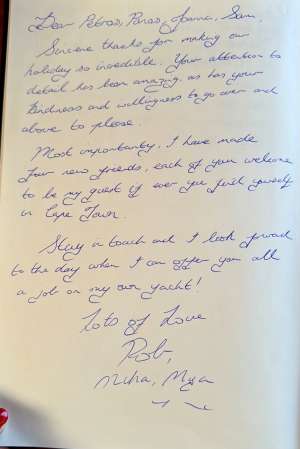 Dear Petros, Panos, Joanna, Sam,
Sincere thanks for making our
holiday so incredible. Your attention to
detail has been amazing, as has your
kindness and willingness to go over and
above to please.
Most importantly, I have made
four new friends, each of you welcome
to be my guest if ever you find yourself
in Cape Town.
Stay in touch and I look forward
to the day when I can offer you all
a job on my own yacht!
Lots of Love
Rob,
Mya